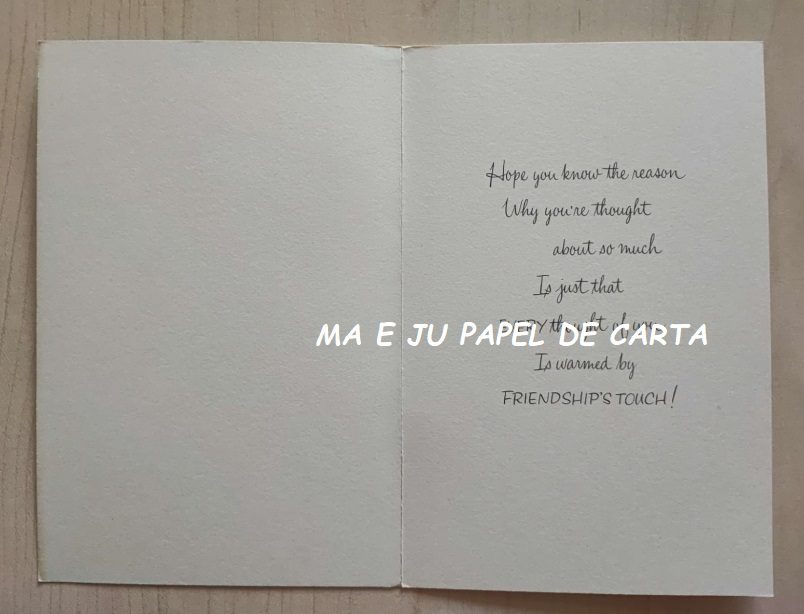 Hope you know the reason
Why you're thought
about so much
Is just that
EVERY thought of you
Is warmed by
FRIENDSHIP'S TOUCH!
MA E JU PAPEL DE CARTA